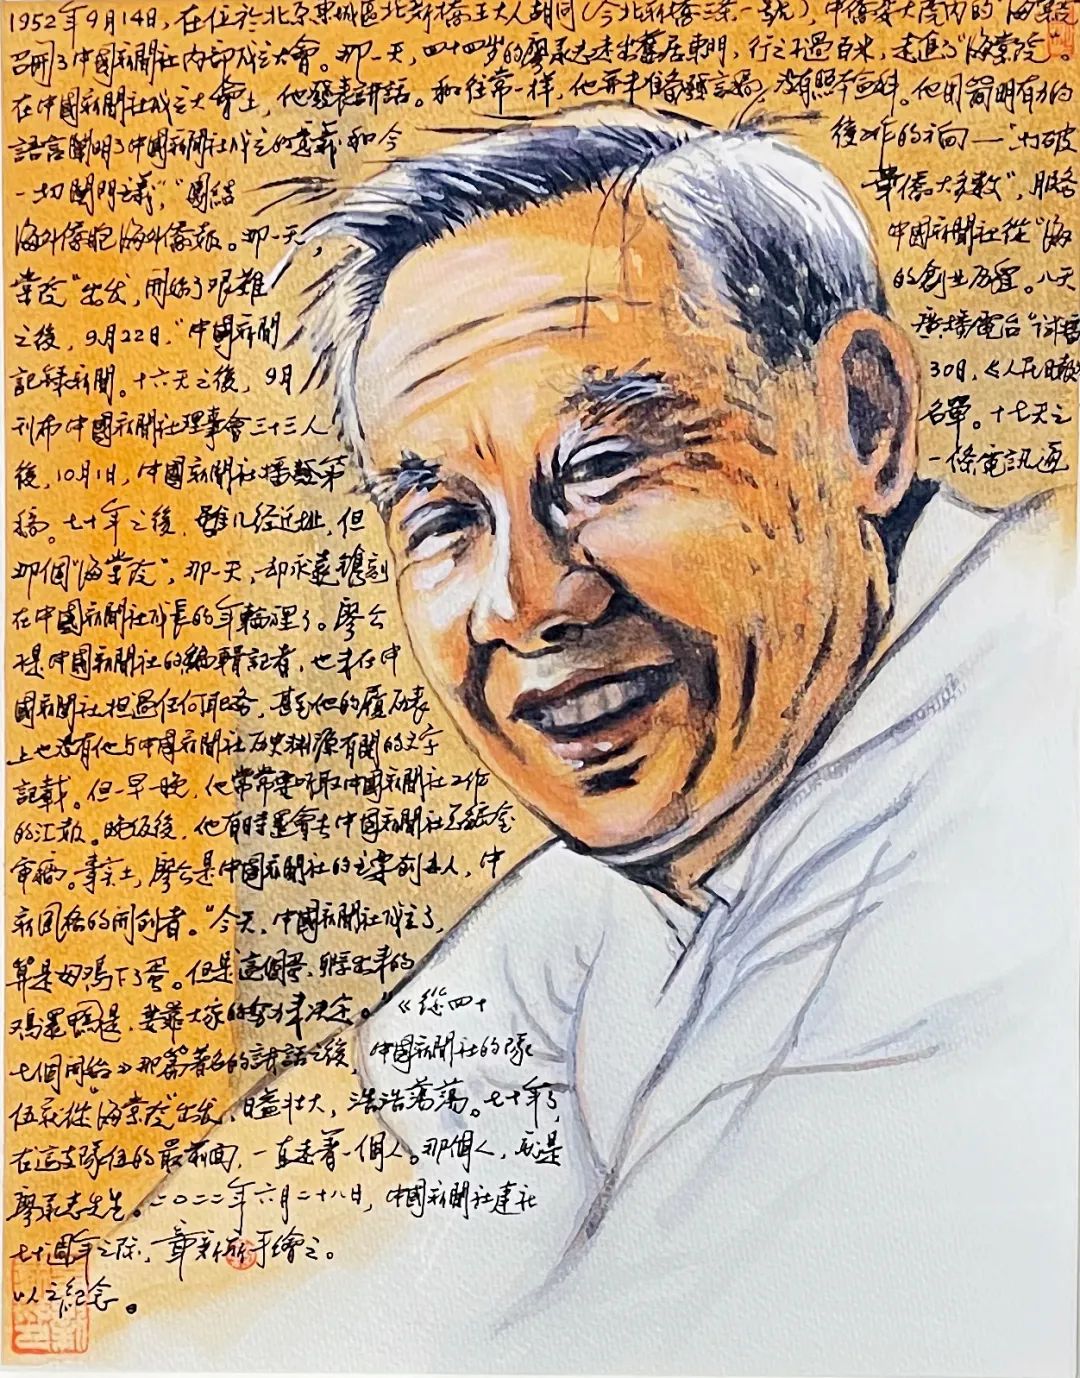 1952年9月14日，在位於北京東城區北新橋王大人胡同（今北新橋三条一號），中僑委大院内的“海棠院”
召開了中國新聞社内部成立大會。那一天，四十四岁的廖承志走出舊居東門，行之不過百米，走進了“海棠院”。
在中國新聞社成立大會上，他發表講話。和往常一样，他并未准备發言稿，没有照本宣科。他用簡明有力的
語言闡明了中國新聞社成立的意義和今後工作的方向——“打破
一切關門主義”，“團結華僑大多數”，服务
海外僑胞海外僑報。那一天，中國新聞社從“海
棠院”出发，開始了艰難的創业历程。八天
之後，9月22日，“中國新聞廣播電台”试播
記録新聞。十六天之後，9月30日，《人民日報》
刊布中國新聞社理事會三十三人名單。十七天之
後，10月1日，中國新聞社播發第一條電訊通
稿。七十年之後，雖几经迁址，但
那個“海棠院”，那一天，却永遠鐫刻
在中國新聞社成長的年輪裡了。廖公
不是中國新聞社的編輯記者，也未在中
國新聞社担過任何职务，甚至他的履历表
上也没有他与中國新聞社历史淵源有関的文字
記載。但一早一晚，他常常要听取中國新聞社工作
的汇報。晚饭後，他有時還會去中國新聞社編輯室
審稿。事实上，廖公是中國新聞社的主要創办人，中
新風格的開創者。“今天，中國新聞社成立了，
算是母鸡下了蛋。但是這個蛋，孵出来的
鸡還是鴨，要靠大家的努力来决定。”《從四十
七個開始》那篇著名的講話之後，中國新聞社的隊
伍就從“海棠院”出发，日益壮大，浩浩蕩蕩。七十年了，
在這支隊伍的最前面，一直走著一個人。那個人，就是
廖承志先生。二〇二二年六月二十八日，中國新聞社建社
七十週年之际，章新新手繪之。
以之紀念。